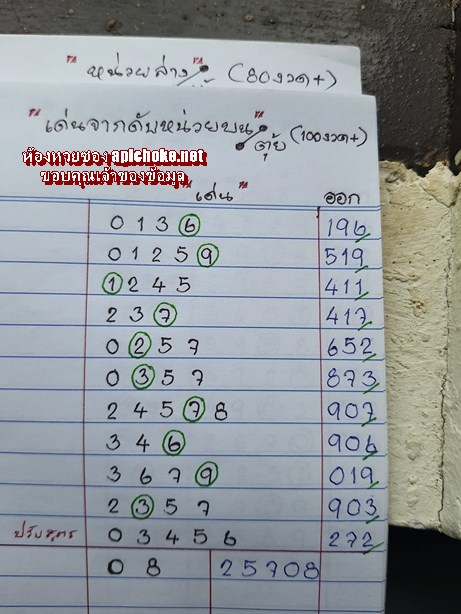 "หน่วยล่าง" (80งวด+)
"เด่นจากดับหน่วยบน" ตุ้ย (100งวด+)
ห้องหายซอง apichoke.net
ขอบคุณเจ้าของข้อมูล
"เด่น" ออก
0 1 3 6 196
0 1 2 5 9 519
1 2 4 5 411
2 3 7 417
0 2 5 7 652
0 3 5 7 873
2 4 5 7 8 907
3 4 6 906
3 6 7 9 019
2 3 5 7 903
ปรับสูตร 0 3 4 5 6 272
0 8 25708